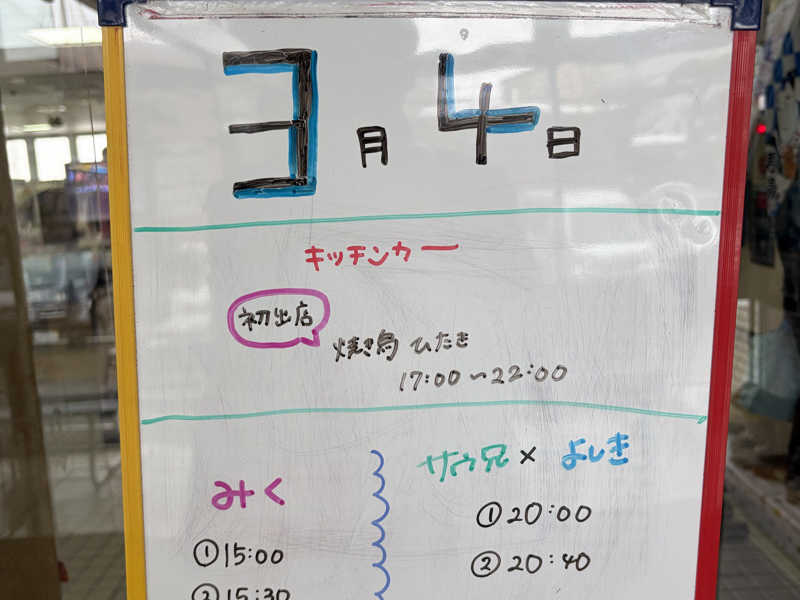 3月4日
キッチンカー
初出店
焼き鳥 ひたき
17:00~22:00
みく
①15:00
②15:30
サウ兄×よしき
①20:00
②20:40